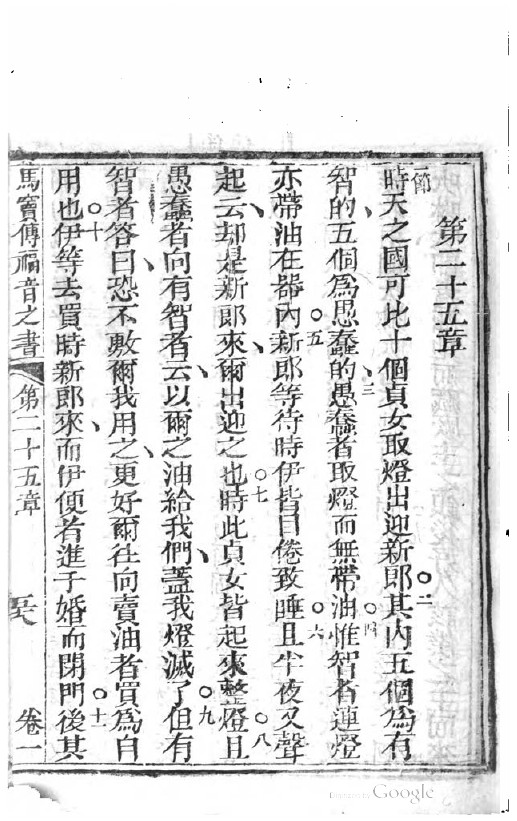 第二十五章
節時天之國可比十個貞女取燈出迎新郎○二其內五個為有
智的五個為愚蠢的、三愚蠢者取燈而無帶油○四惟智者連燈
亦帶油在器內○五新郎等待時伊皆目倦致睡○六且半夜叉聲
起云、却是新郎來、爾出迎之也○七時此貞女皆起來整燈○八且
愚蠢者向有智者、云、以爾之油給我們、蓋我燈滅了○九但有
智者答曰、恐不敷爾我用之、更好爾往向賣油者買為自
用也○十伊等去買時新郎、來而伊便者進于婚而閉門○十一後其
馬竇傳福音之書 第二十五章 卷一
Google